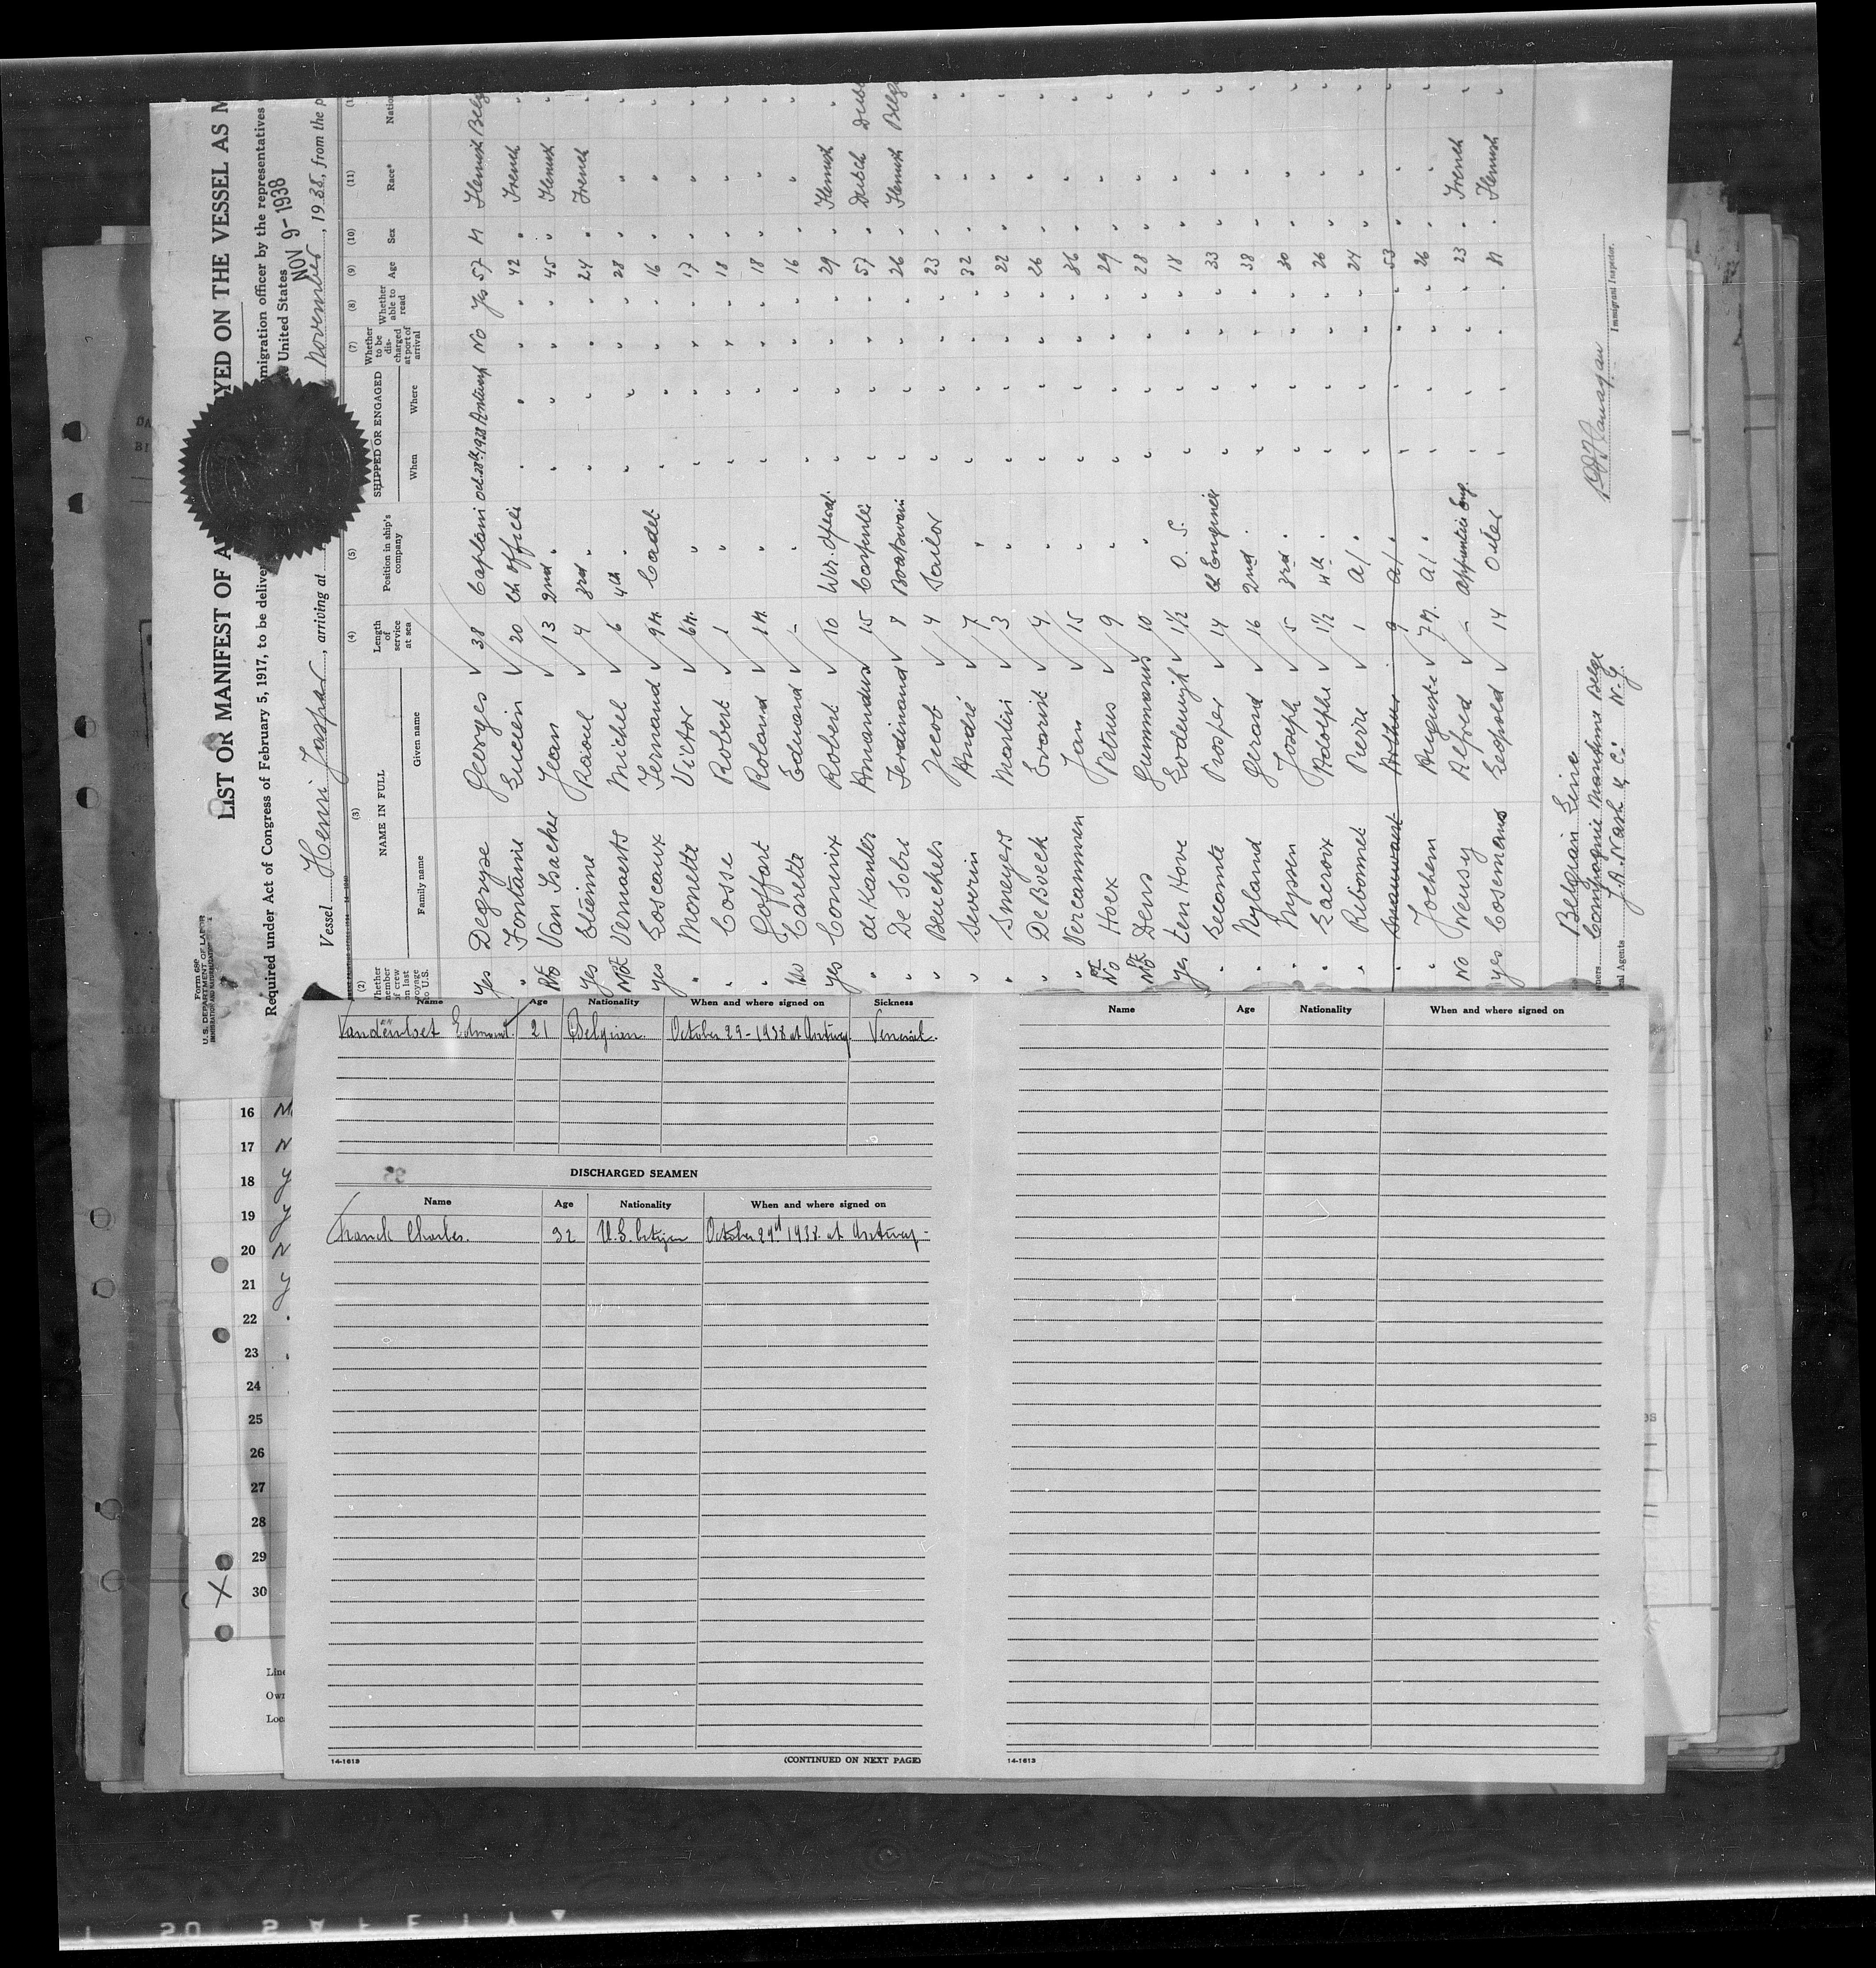 Form 689
U.S. DEPARTMENT OF LABOR
LIST OR MANIFEST OF A
YED ON THE VESSEL AS M
Required under Act of Congress of February 5, 1917, to be deliver
migration officer by the representatives
United States
NOV 9-1938
Vessel Henri Jaspar, arriving at
November, 1938, from the p
(2) (3) (4) (5) (7) (8) (9) (10) (11)
NAME IN FULL
Family name Given name
Length of service at sea
Position in ship's company
SHIPPED OR ENGAGED
When Where
Whether to be discharged at port of arrival
Whether able to read
Age Sex Race* Natio
yes Degryse Georges 38 Captain Oct. 28th 1938 Antwerp No Yes 57 M Flemish Belg
" Fontaine Lucien 20 Ch officer " " " " 42 " French "
Van Isacker Jean 13 2nd " " " " " 45 " Flemish "
yes Etienne Raoul 4 3rd " " " " " 24 " French "
Vernaerts Michel 6 4th " " " " " 28 " " "
yes Loscaux Fernand 9 M. Cadet " " " " 16 " " "
" Monette Victor 6 M. " " " " " 17 " " "
" Cosse Robert 1 " " " " " 18 " " "
" Goffart Roland " " " " " 18 " " "
No Carette Edward - " " " " " 16 " " "
yes Coninix Robert 10 Wir. operat. " " " " 29 " Flemish "
" de Kanter Amandus 15 Carpenter " " " " 57 " Dutch
" De Sobre Ferdinand 8 Boatswain " " " " 26 " Flemish Belg
" Beuckels Jacob 4 Sailor " " " " 23 " " "
" Severin André 7 " " " " " 32 " " "
" Smeyers Martin 3 " " " " " 22 " " "
" De Boeck Evarist 4 " " " " " 26 " " "
" Vercammen Jan 15 " " " " " 36 " " "
No Hoex Petrus 9 " " " " " 29 " " "
No Dens Gummarus 10 " " " " " 28 " " "
yes ten Hove Lodewijk 1½ O. S. " " " " 18 " " "
" Lecomte Prosper 14 Ch Engineer " " " " 33 " " "
" Nyland Gerard 16 2nd " " " " " 38 " " "
" Nyssen Joseph 5 3rd " " " " " 30 " " "
" Lacroix Adolphe 1½ 4th " " " " " 26 " " "
" Ribonnet Pierre 1 a/ " " " " " 24 " " "
" Arthur 9 a/ " " " " " 53 " " "
" Jochem Auguste 7 M. a/ " " " " " 26 " " "
No Wensy Alfred - apprentice Eng. " " " " 23 " French "
yes Cosemans Leopold 14 Oiler " " " " 31 " Flemish "
Belgian Line
Compagnie Maritime Belge
J.A. Nash & C: N.Y.
Immigrant Inspector.
Name Age Nationality When and where signed on Sickness
Edmond 21 Belgian October 29-1938 at Antwerp. Venerial.
DISCHARGED SEAMEN
Name Age Nationality When and where signed on
Franck Charles. 32 U.S. Citizen October 29th 1938. at Antwerp-
14-1613
(CONTINUED ON NEXT PAGE)
Name Age Nationality When and where signed on
14-1613
16
17
18
19
20
21
22
23
24
25
26
27
28
29
30
Line
Own
Loc